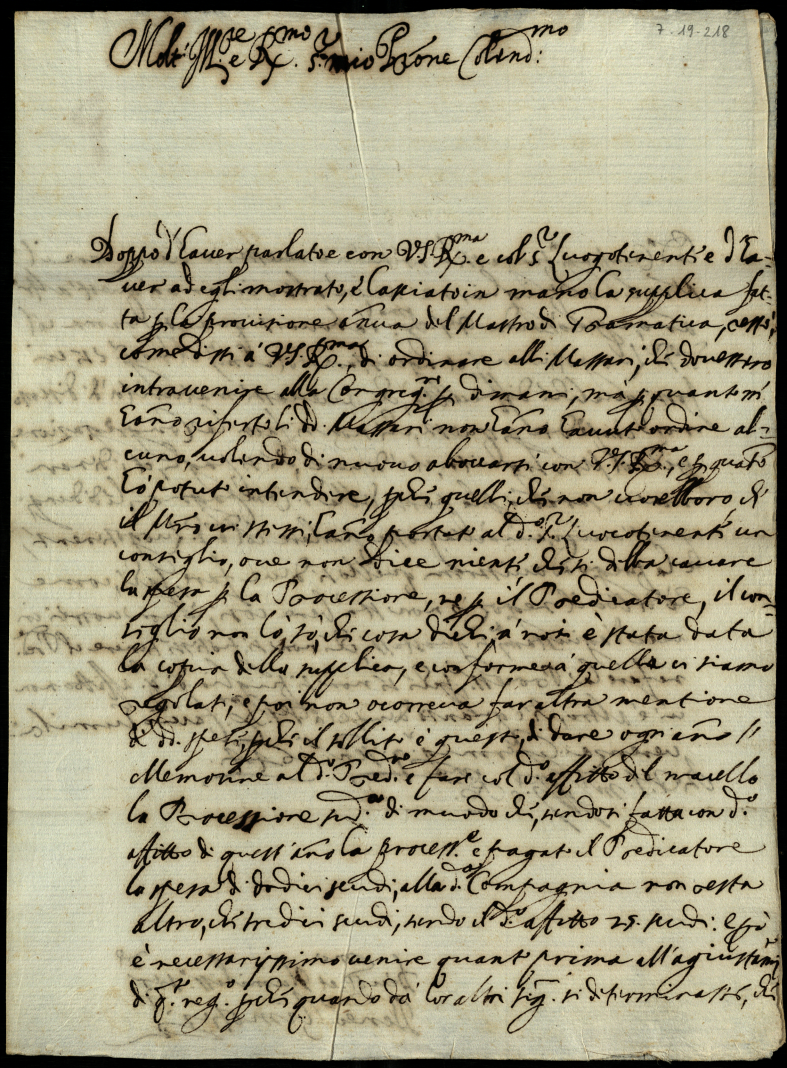 7-19-218
Molt' Ill.re e R.mo S.r mio P.rone Colend.mo
Doppo d'haver parlato e con V.S. R.ma e col S.r Luogotenente e d'ha=
ver ad egli mostrato, e lassiato in mano la supplica fat=
ta p. la provisione annua del Mastro di Gramatica, restò,
come dissi à V.S. R.ma, di ordinare alli Massari, che dovessero
intravenire alla Congreg.ne p. dimani, mà p. quanto m'
hanno riferto li d.i Massari non hanno havuto ordine al=
cuno, volendo di nuovo aboccarsi con V.S. R.ma, e p. quanto
hò potuto intendere, perche quelli, che non vorebboro, che
il Mro vi stesse, hano portato al d.o S.r Luocotenente un
consiglio, ove non dice niente che si debba cavare
la spesa p. la Processione, ne p. il Predicatore, il con=
siglio non lo sò, che cosa dichi, à noi è stata data
la copia della supplica, e conforme à quella ci siamo
regolati, e poi non ocorreva far altra mentione
di d.e spese, perche il solito è questo, di dare ogni año //
elemosine al d.o Pred.re e fare col d.o affitto del macello
la Processione sud.a di muodo che, sendosi fatta con d.o
affitto di quest'año la process.e e pagato il Predicatore
la spesa di dodici scudi, alla d.a Compagnia non resta
altro, che tredici scudi, sendo il d.o affitto 25. scudi: e p.ò
è necessarissimo venire quanto prima all'agiustam.to
di q.to neg.o perche quando dà lor altri Sig.ri si determinasse, che